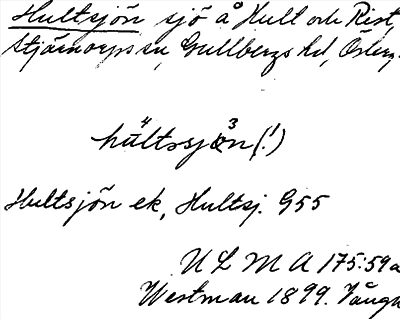 Hultsjön sjö å Hult och Rist,
Stjärnorps sn, Gullbergs hd, Österg.
hül̈tsjön³(!)
Hultsjön ek, Hultsj. G55
U L M A 175:59a
Westman 1899.